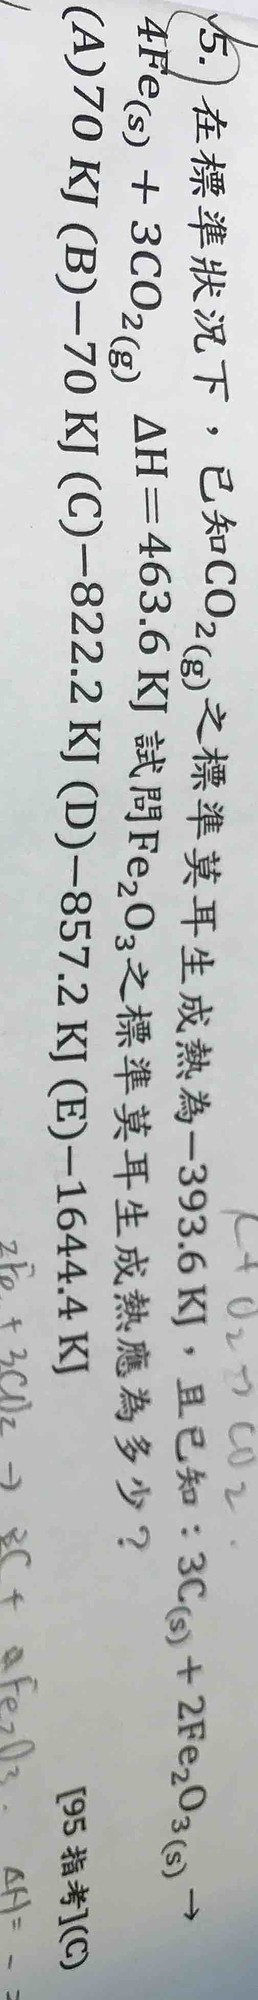 5. 在標準狀況下，已知CO₂(g)之標準莫耳生成熱為−393.6 KJ，且已知：3C(s)＋2Fe₂O₃(s)→
4Fe(s)＋3CO₂(g) ΔH＝463.6 KJ 試問Fe₂O₃之標準莫耳生成熱應為多少？
(A)70 KJ (B)−70 KJ (C)−822.2 KJ (D)−857.2 KJ (E)−1644.4 KJ
[95 指考](C)
C + O₂ → CO₂
+ 3CO₂ → C + Fe₂O₃. ΔH = -